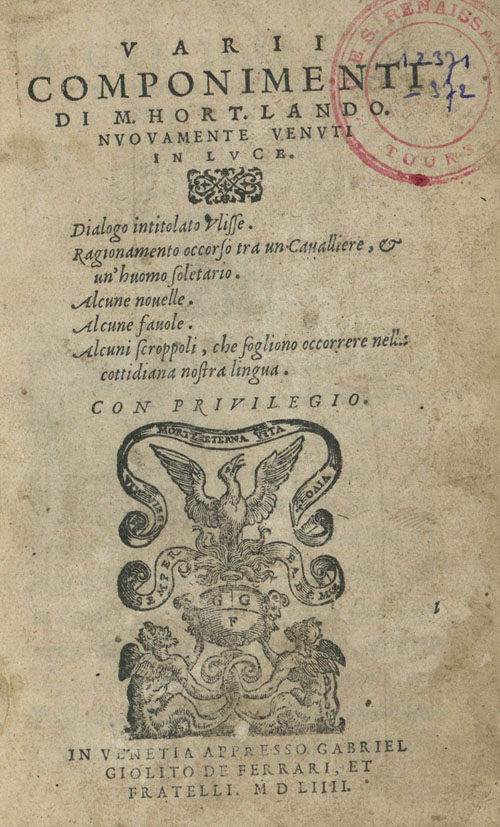 VARII
COMPONIMENTI
DI M. HORT. LANDO.
NVOVAMENTE VENVTI
IN LVCE.
Dialogo intitolato Vlisse.
Ragionamento occorso tra un Caualliere, &
un'huomo soletario.
Alcune nouelle.
Alcune fauole.
Alcuni scroppoli, che sogliono occorrere nella
cottidiana nostra lingua.
CON PRIVILEGIO.
MORTE ETERNA VITA
SEMPER
EADEM
G G
F
IN VENETIA APPRESSO GABRIEL
GIOLITO DE FERRARI, ET
FRATELLI. M D LIIII.
E. S. RENAISSA
TOURS
12371
- 372